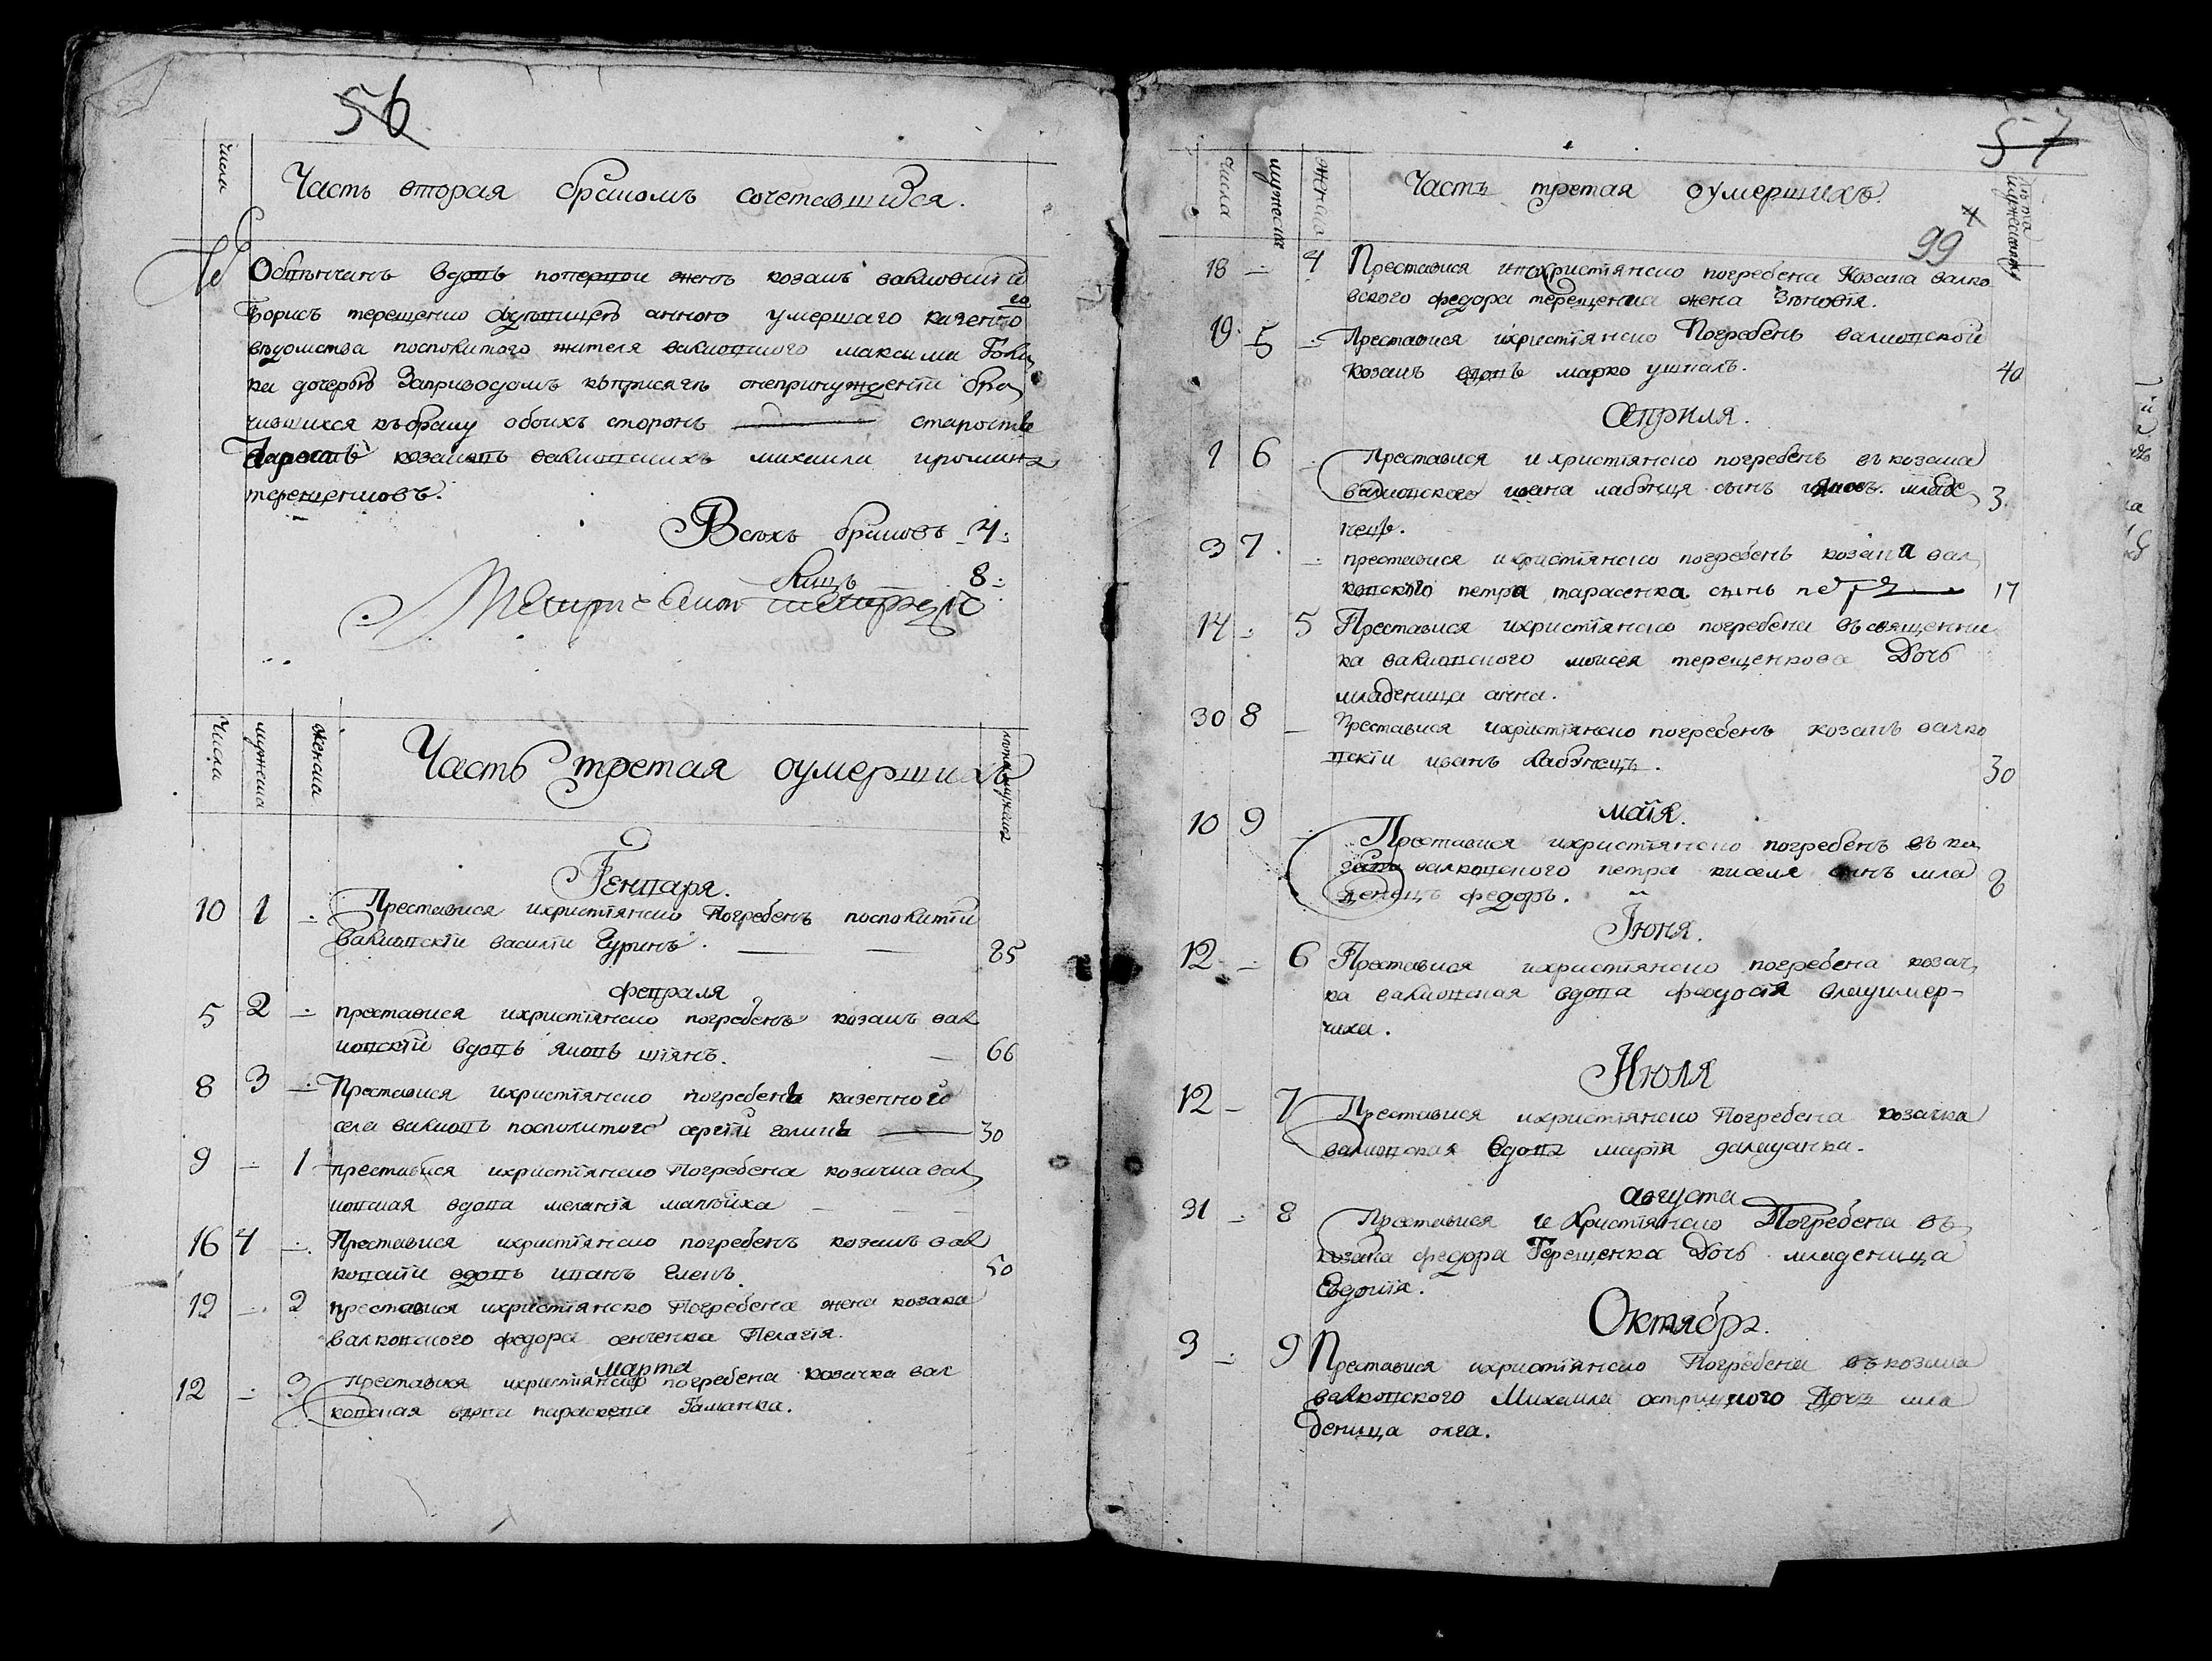 56
числа
Часть вторая бракомъ сочетавшихся.
Обвѣнчанъ вдовъ попервой женѣ козакъ валковскій
Борисъ терещенко здѣвицею анною умершаго казенного
вѣдомства посполитого жителя валковского максима
ка дочерью Заприводомъ къприсягѣ онепринужденіи бра
чившихся къбраку обоихъ сторонъ старостъ
козаковъ валковскихъ михаила
терещенковъ.
Всѣхъ браковъ 4:
Лицъ 8:
Числа
мужеска
женска
Часть третая оумершихъ
лѣта мужеска
Генваря.
10 1 Преставися ихристіянско Погребенъ посполитій
валковскій василій Гуринъ. 85
февраля
5 2 преставися ихристіянско погребенъ козакъ вал
ковскій вдовъ яковъ шіянъ. 66
8 3 Преставися ихристіянско погребенъ казенного
села валковъ посполитого сергій голикъ 30
9 1 преставися ихристіянско Погребена козачка вал
ковская вдова меланія
16 4 Преставися ихристіянско погребенъ козакъ вал
ковскій вдовъ иванъ Еленъ. 50
19 2 преставися ихристіянско Погребена жена козака
валковского федора сенченка Пелагія.
марта
12 3 Преставися ихристіянско погребена козачка вал
ковская вдова параскева Гаманка.
57
числа
мужеска
женска
Часть третая оумершихъ.
лѣта мужеска
99
18 4 Преставися ихристіянско погребена Козака валко
вского федора терещенка жена Зѣновія.
19 5 Преставися ихристіянско Погребенъ валковской
козакъ вдовъ марко ушкалъ. 40
Априля.
1 6 Преставися и христіянско погребенъ въ козака
валковского ивана лабѣнця сынъ младе 3
нецъ.
3 7 преставися ихристіянско погребенъ козака вал
ковского петра тарасенка сынъ петръ 17
14 5 Преставися ихристіянско погребена въ священни
ка валковского моисея терещенкова Дочь
младеница анна.
30 8 Преставися ихристіянско погребенъ козакъ валко
вскій иванъ лабѣнецъ. 30
маія.
10 9 Преставися ихристіянско погребенъ въ ко
зака валковского петра киселя сынъ мла
денецъ федоръ.
Іюня.
12 6 Преставися ихристіянско погребена козач
ка валковская вдова феодосія
чиха.
Июля
12 7 Преставися ихристіянско Погребена козачка
валковская вдова марія
августа
31 8 Преставися и христіянско Погребена въ
козака федора Терещенка Дочь младеница
Евдокія.
Октябрь.
3 9 Преставися ихристіянско Погребена въ козака
валковского Михаила острицкого Дочь мла
деница олга.